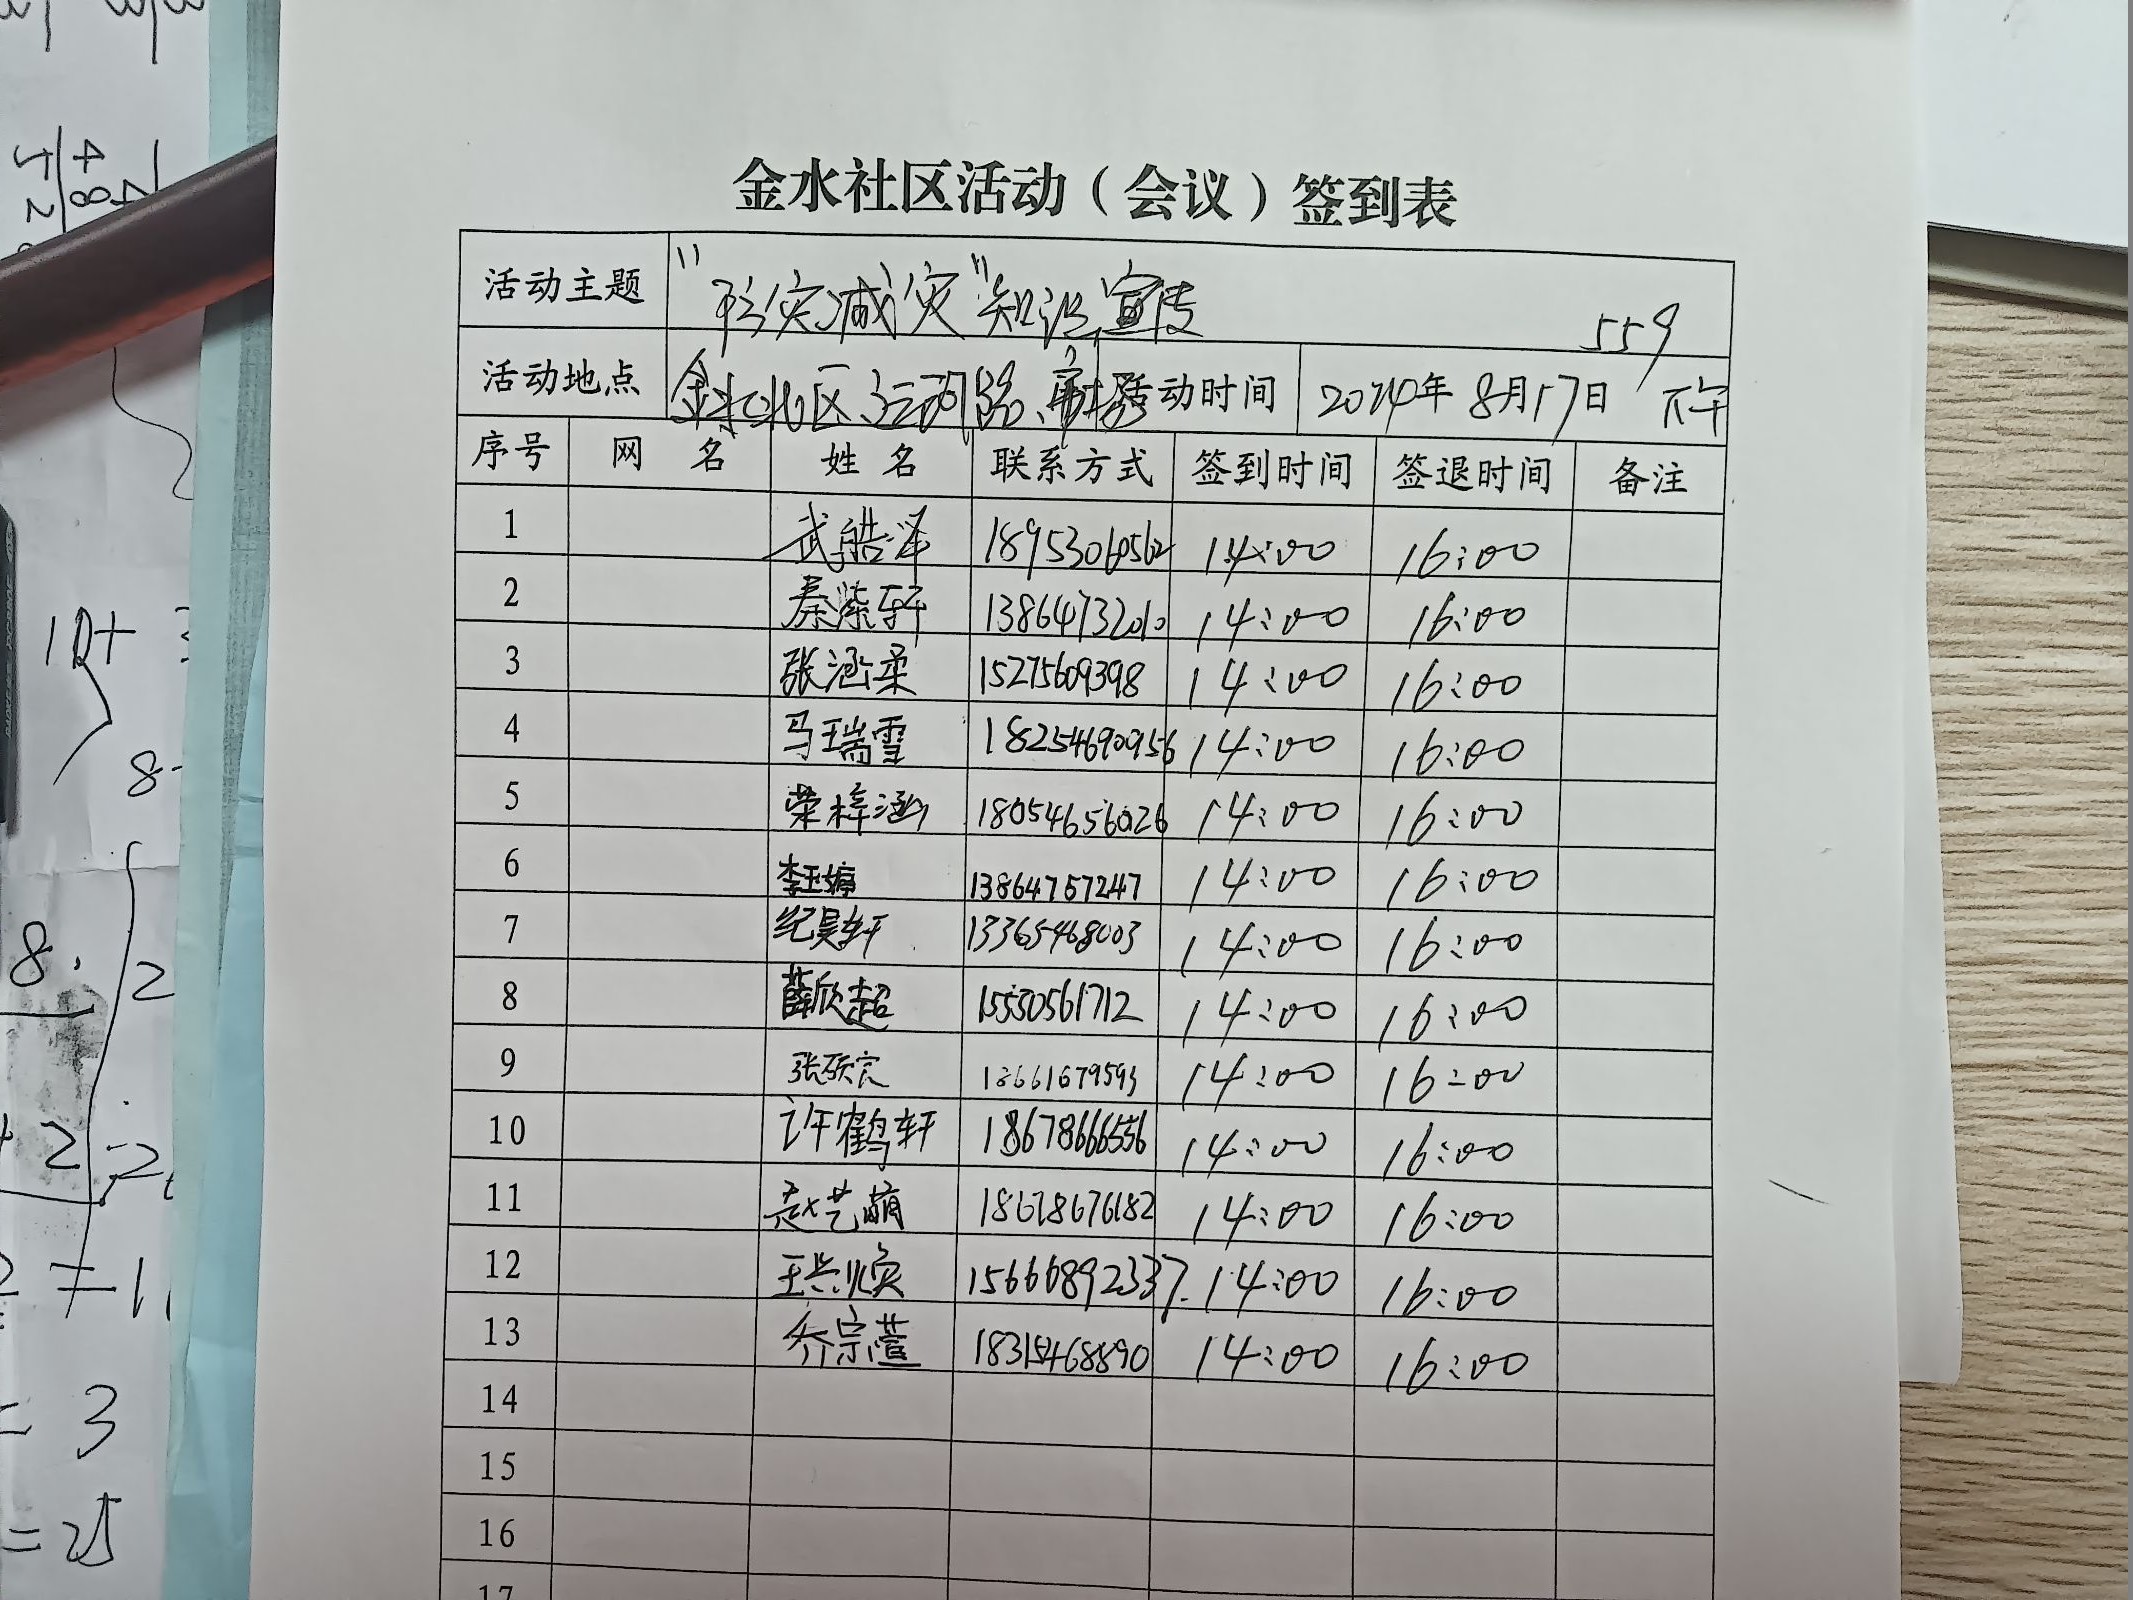 金水社区活动（会议）签到表
活动主题 "防灾减灾"知识宣传 559
活动地点 金水社区、运动路、 活动时间 2024年8月17日 下午
序号 网 名 姓 名 联系方式 签到时间 签退时间 备注
1 武皓泽 18953060562 14:00 16:00
2 秦紫轩 13864732010 14:00 16:00
3 张涵柔 15275609398 14:00 16:00
4 马瑞雪 18254690956 14:00 16:00
5 荣梓涵 18054656026 14:00 16:00
6 李玉婷 13864757247 14:00 16:00
7 纪昊轩 13365468003 14:00 16:00
8 薛欣超 15550561712 14:00 16:00
9 14:00 16:00
10 许鹤轩 18678666556 14:00 16:00
11 赵艺萌 18678676182 14:00 16:00
12 15666892337 14:00 16:00
13 乔宗萱 14:00 16:00
14
15
16
17
10+
8
8.
2
= 3
= 25